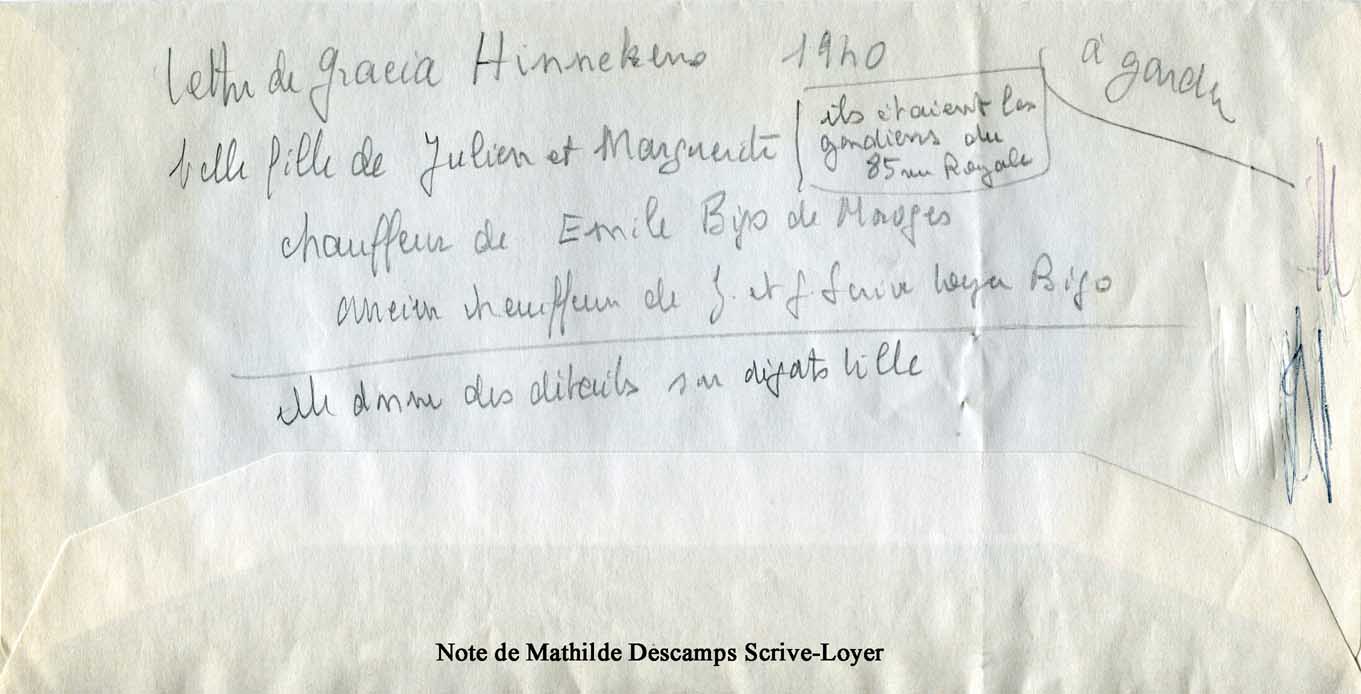 lettre de gracia Hinnekens 1940
à garder
belle fille de Julien et Marguerite
ils étaient les
gardiens du
85 rue Royale
chauffeur de Emile Bigo de Moroges
ancien chauffeur de J. et J. Scrive Loyer Bigo
elle donne des détails sur dégats lille
Note de Mathilde Descamps Scrive-Loyer